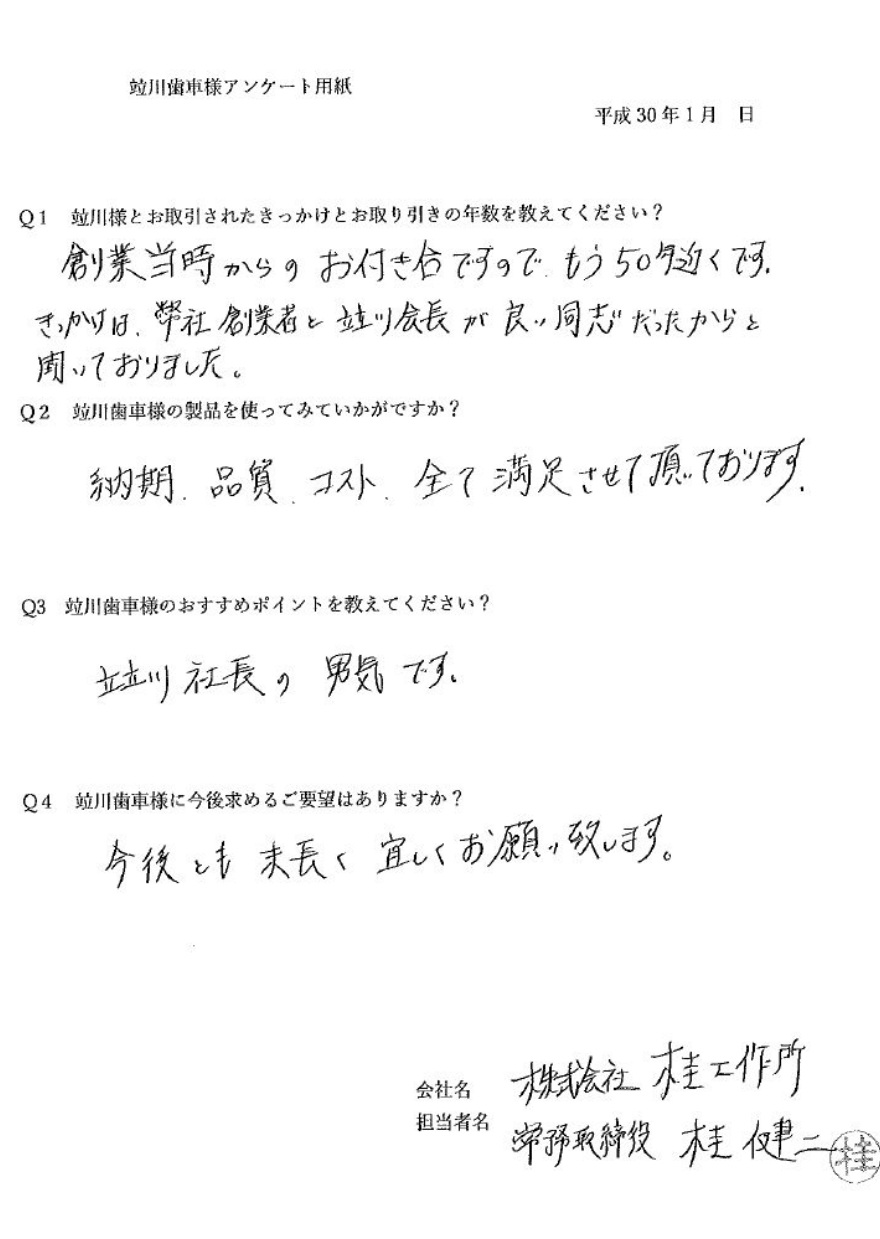 竝川歯車様アンケート用紙
平成30年1月　日
Q1　竝川様とお取引されたきっかけとお取り引きの年数を教えてください？
創業当時からの お付き合ですので、もう50年近くです。
きっかけは、弊社 創業者と 竝川会長が 良い同志だったからと
聞いておりました。
Q2　竝川歯車様の製品を使ってみていかがですか？
納期、品質、コスト、全て 満足させて頂いております。
Q3　竝川歯車様のおすすめポイントを教えてください？
竝川 社長の 男気です。
Q4　竝川歯車様に今後求めるご要望はありますか？
今後とも 末長く 宜しくお願い致します。
会社名　株式会社 桂工作所
担当者名　常務取締役 桂 健二
桂